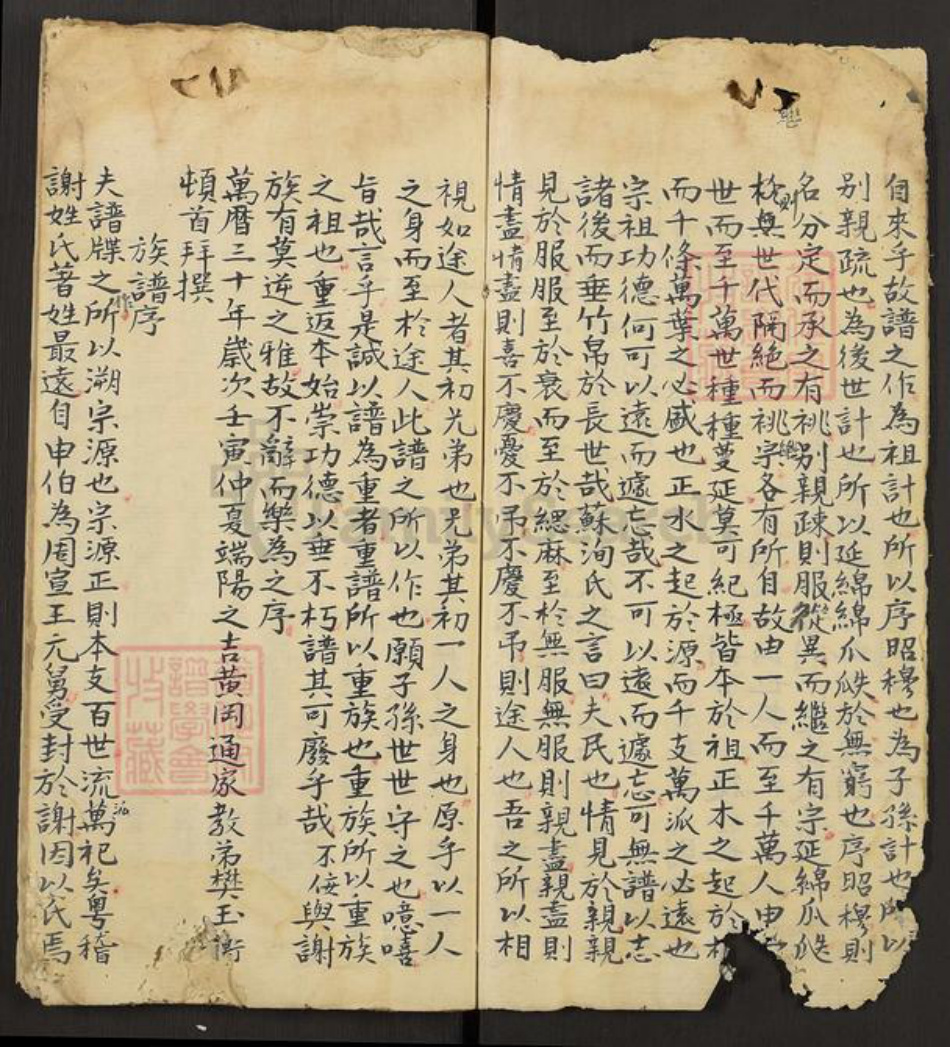 自來乎故譜之作為祖計也所以序昭穆也為子孫計也所以
别親疏也為後世計也所以延綿綿瓜瓞於無窮也序昭穆則
名分定而承之有祧别親疎則服從異而繼之有宗延綿瓜瓞
則與世代隔絶而祧宗各有所自故由一人而至千萬人由
世而至千萬世種種蔓延莫可紀極皆本於祖正木之起於
而千條萬葉之必盛也正水之起於源而千支萬派之必遠也
宗祖功德何可以遠而遽忘哉不可以遠而遽忘可無譜以志
諸後而垂竹帛於長世哉蘇洵氏之言曰夫民也情見於親親
見於服服至於衰而至於緦麻至於無服無服則親盡親盡則
情盡情盡則喜不慶憂不吊不慶不吊則途人也吾之所以相
視如途人者其初兄弟也兄弟其初一人之身也原乎以一人
之身而至於途人此譜之所以作也願子孫世世守之也噫嘻
旨哉言乎是誠以譜為重者重譜所以重族也重族所以重族
之祖也重返本始崇功德以垂不朽譜其可廢乎哉不佞與謝
族有莫逆之雅故不辭而樂為之序
萬曆三十年歲次壬寅仲夏端陽之吉黄岡通家教弟樊玉衡
頓首拜撰
族譜序
夫譜牒之所以作溯宗源也宗源正則本支百世流派萬祀矣粤稽
謝姓氏著姓最遠自申伯為周宣王元舅受封於謝因以氏焉
譜學會
收藏
FamilySearch